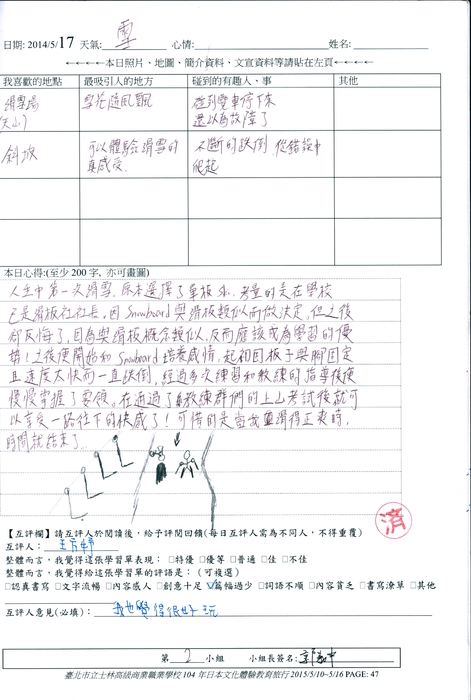 日期: 2014/5/17 天氣: 雪 心情: 姓名:
←←←←←本日照片、地圖、簡介資料、文宣資料等請貼在左頁←←←←
我喜歡的地點 最吸引人的地方 碰到的有趣人、事 其他
滑雪場 雪花隨風飄 碰到纜車停下來
(天山) 還以為故障了
斜坡 可以體驗滑雪的 不斷的跌倒 從錯誤中
真感受 爬起
本日心得:(至少 200 字, 亦可畫圖)
人生中第一次滑雪, 原本選擇了單板 考量的是在學校
已是滑板社社長, 因 Snowboard 與滑板類似而做決定, 但之後
卻反悔了, 因為與滑板概念類似, 反而應該成為學習的優
勢! 之後便開始和 Snowboard 培養感情, 起初因板子與腳固定
且速度太快而一直跌倒, 經過多次練習和教練的指導後便
慢慢掌握了要領, 在通過了教練群們的上山考試後就可
以享受一路往下的快感了! 可惜的是當我要滑得正爽時,
時間就結束了...
済
【互評欄】請互評人於閱讀後,給予評閱回饋(每日互評人需為不同人,不得重覆)
互評人:
整體而言,我覺得這張學習單表現: □特優 □優等 □普通 □佳 □不佳
整體而言,我覺得給這張學習單的評語是: (可複選)
□認真書寫 □文字流暢 □內容感人 □創意十足 ☑篇幅過少 □詞語不順 □內容貧乏 □書寫潦草 □其他
互評人意見(必填): 我也覺得很好玩
第 2 小組 小組長簽名:
臺北市立士林高級商業職業學校 104 年日本文化體驗教育旅行 2015/5/10~5/16 PAGE: 47